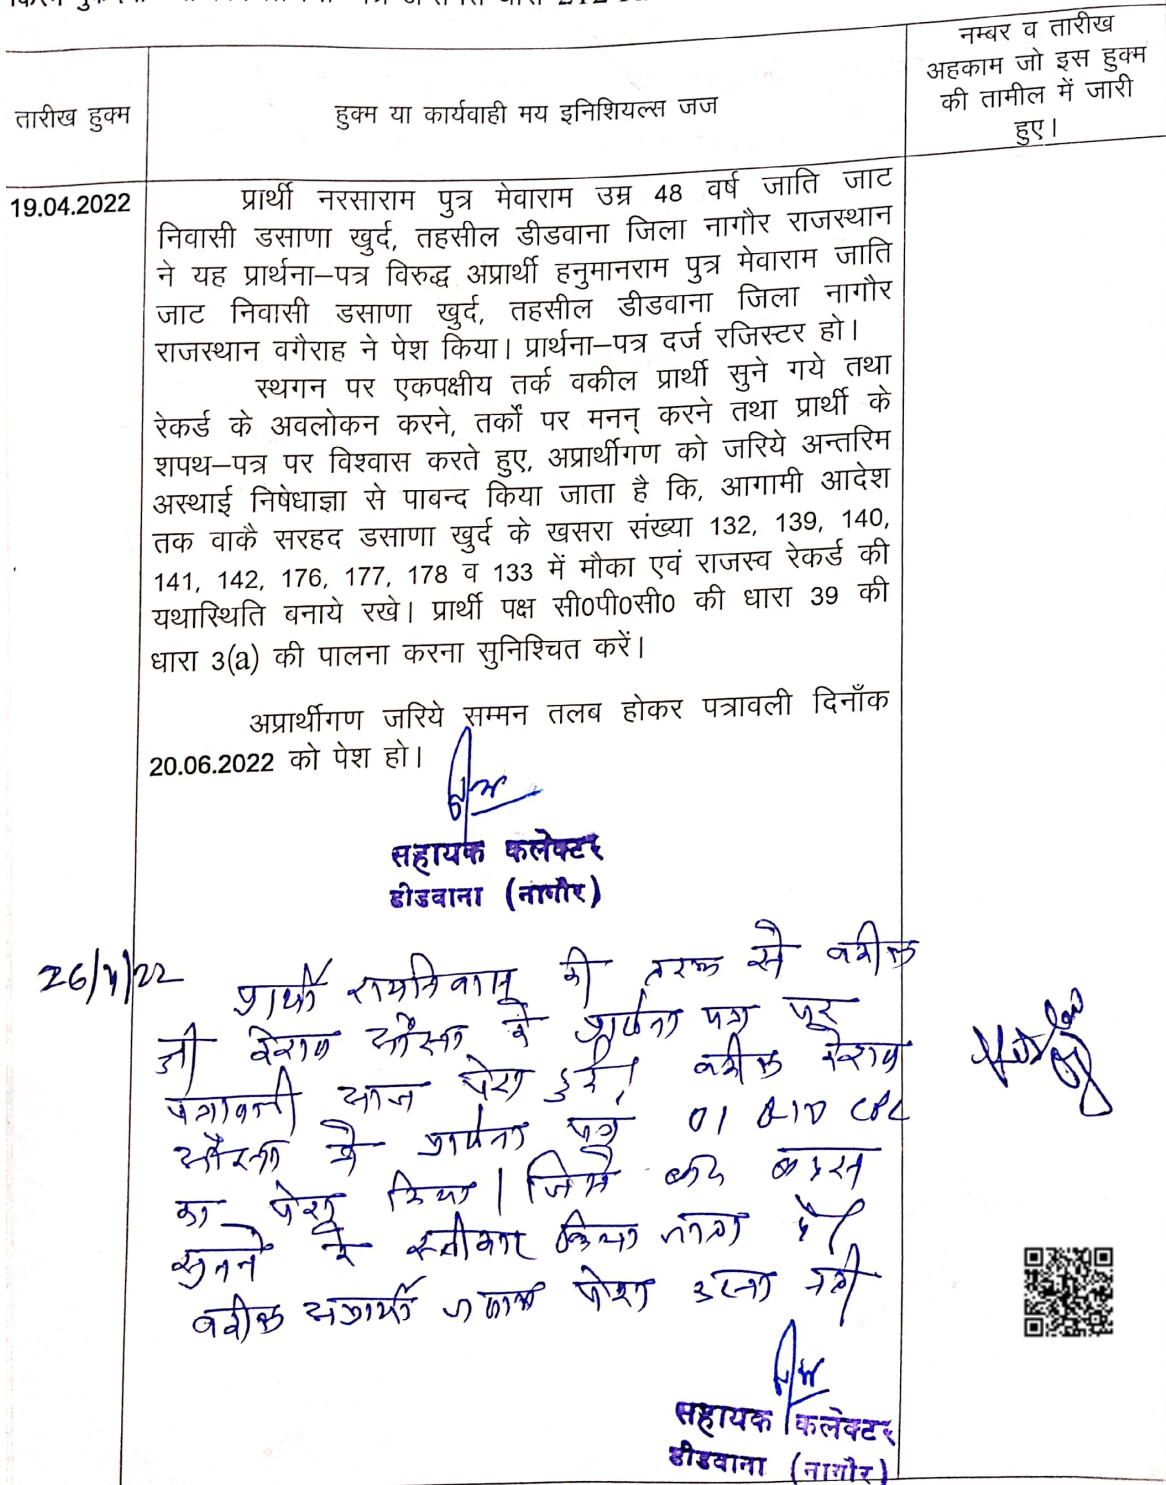 तारीख हुक्म
हुक्म या कार्यवाही मय इनिशियल्स जज
नम्बर व तारीख
अहकाम जो इस हुक्म
की तामील में जारी
हुए।
19.04.2022
प्रार्थी नरसाराम पुत्र मेवाराम उम्र 48 वर्ष जाति जाट
निवासी डसाणा खुर्द, तहसील डीडवाना जिला नागौर राजस्थान
ने यह प्रार्थना–पत्र विरुद्ध अप्रार्थी हनुमानराम पुत्र मेवाराम जाति
जाट निवासी डसाणा खुर्द, तहसील डीडवाना जिला नागौर
राजस्थान वगैराह ने पेश किया। प्रार्थना–पत्र दर्ज रजिस्टर हो।
स्थगन पर एकपक्षीय तर्क वकील प्रार्थी सुने गये तथा
रेकर्ड के अवलोकन करने, तर्कों पर मनन् करने तथा प्रार्थी के
शपथ–पत्र पर विश्वास करते हुए, अप्रार्थीगण को जरिये अन्तरिम
अस्थाई निषेधाज्ञा से पाबन्द किया जाता है कि, आगामी आदेश
तक वाकै सरहद डसाणा खुर्द के खसरा संख्या 132, 139, 140,
141, 142, 176, 177, 178 व 133 में मौका एवं राजस्व रेकर्ड की
यथास्थिति बनाये रखे। प्रार्थी पक्ष सी0पी0सी0 की धारा 39 की
धारा 3(a) की पालना करना सुनिश्चित करें।
अप्रार्थीगण जरिये सम्मन तलब होकर पत्रावली दिनाँक
20.06.2022 को पेश हो।
सहायक कलेक्टर
डीडवाना (नागौर)
26/4/22
प्रार्थी की तरफ से वकील
श्री प्रार्थना पत्र पर
पत्रावली आज पेश हुई। वकील
के प्रार्थना पत्र 01 R10 CPC
का पेश किया। जिसे बाद बहस
सुनने के स्वीकार किया जाता है।
वकील अप्रार्थी जवाब पेश
सहायक कलेक्टर
डीडवाना (नागौर)